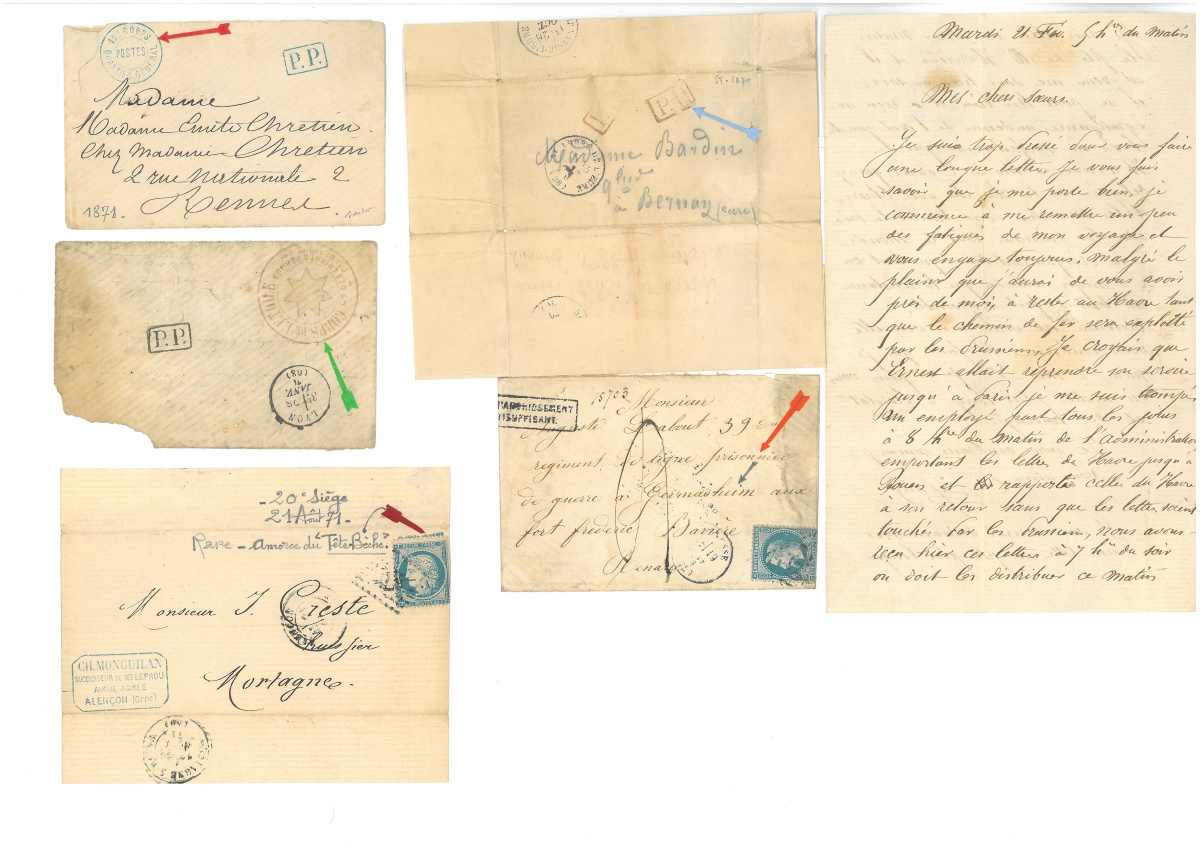 18E CORPS
POSTES
QUARTIER GENERAL
P.P.
Madame
Madame Emile Chretien
Chez Madame Chretien
2 rue Nationale 2
Rennes
1871.
CORPS DE L'ETOILE
P.P.
LYON
28
JANV.
71
(68)
20e Siège
21 Août 71
Rare - Amorce du "Tête-Bêche"
Monsieur J. Creste
huissier
Mortagne
CH. MONGUILAN
AVOUÉ AGRÉÉ
ALENÇON (Orne)
OCT.
P.P.
Madame Bardin
à Bernay (eure)
AFFRANCHISSEMENT
INSUFFISANT.
15703
Monsieur
Auguste 39em
regiment de ligne prisonnier
de guerre a Germasheim aux
fort frederic Baviere
Renane
Mardi 21 Fév. 5 hres du matin
Mes chers sœurs.
Je suis trop pressé pour vous faire
une longue lettre, Je vous fais
savoir que je me porte bien, je
commence a me remettre un peu
des fatigues de mon voyage et
vous engage toujours, malgré le
plaisir que j'aurai de vous avoir
près de moi, à rester au Havre tant
que le chemin de fer sera exploité
par les Prussiens, Je croyais que
Ernest allait reprendre son service
jusqu'à Paris je me suis trompé
un employé part tous les jours
à 8 hres du matin de l'administration
emportant les lettres du Havre jusqu'à
Rouen et rapporte celles du Havre
à son retour sans que les lettres soient
touché par les Prussiens, nous avons
reçu hier ces lettres à 7 hres du soir
on doit les distribuer ce matin